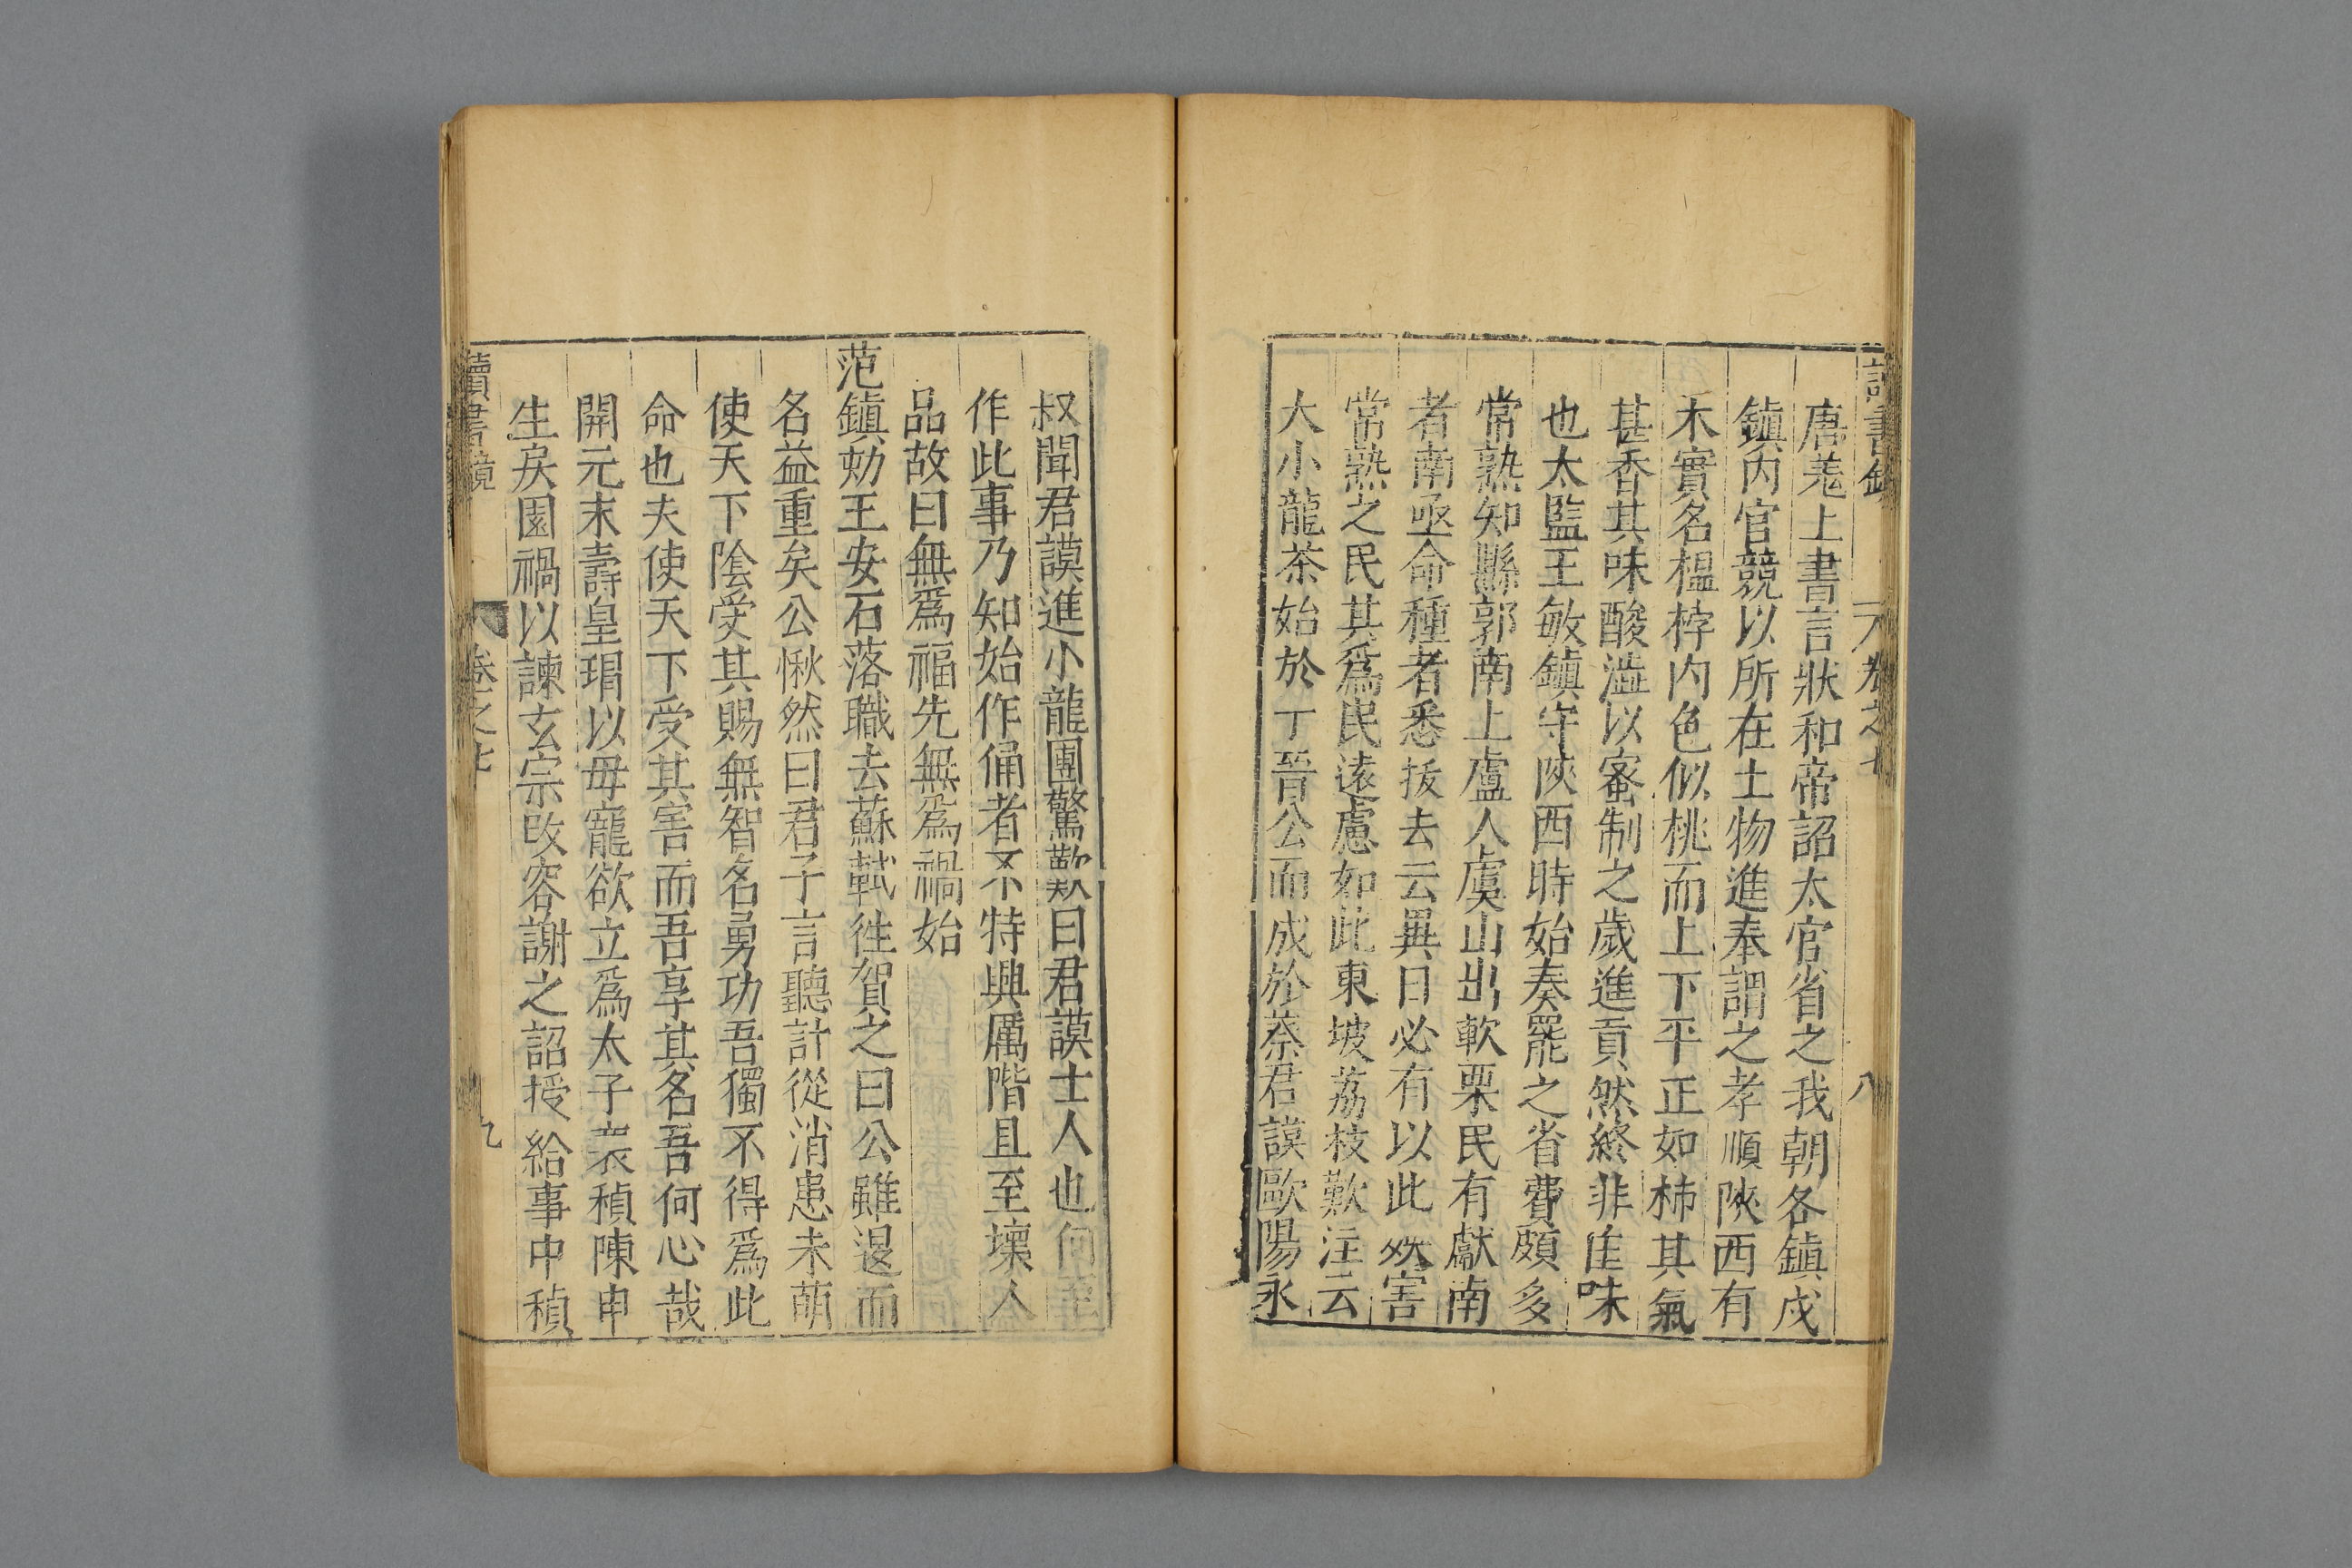 卷之七
八
唐羗上書言狀和帝詔太官省之我朝各鎮戍
鎮內官競以所在土物進奉謂之孝順陝西有
木實名榲桲內色似桃而上下平正如柿其氣
甚香其味酸澁以蜜制之歲進貢然終非佳味
也太監王敏鎮守陝西時始奏罷之省費頗多
常熟知縣郭南上盧人虞山出軟栗民有獻南
者南亟命種者悉拔去云異日必有以此殃害
常熟之民其爲民遠慮如此東坡荔枝歎注云
大小龍茶始於丁晉公而成於蔡君謨歐陽永
叔聞君謨進小龍團驚歎曰君謨士人也何至
作此事乃知始作俑者不特興厲階且至壞人
品故曰無爲福先無爲禍始
范鎮劾王安石落職去蘇軾徃賀之曰公雖退而
名益重矣公愀然曰君子言聽計從消患未萌
使天下陰受其賜無智名勇功吾獨不得爲此
命也夫使天下受其害而吾享其名吾何心哉
開元末壽皇瑁以母寵欲立爲太子裴稹陳申
生戾園禍以諫玄宗改容謝之詔授給事中稹
讀書鏡
卷之七
九